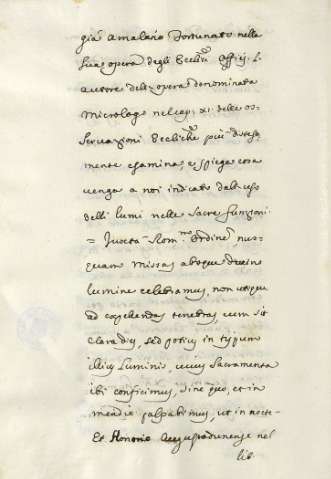 già Amalario Fortunato nella
sua opera degli Eccliĉi Officij. L'
autore dell'opera denominata
Micrologo nel cap. XI. delle os-
servazioni Eccliĉhe più distesa-
mente esamina, e spiega cosa
venga a noi indicato dall'uso
delli lumi nelle Sacre funzioni
= Juxta Rom.m Ordine nus-
quam Missas absque
lumine celebramus, non utique
ad expellendas tenebras, cum sit
clara dies, sed potius in typum
illius Luminis, cuius Sacramenta
ibi conficimus, sine quo, et in
meridie palpabimus, ut in nocte-
Et Honorio Augustodunense nel
lib.